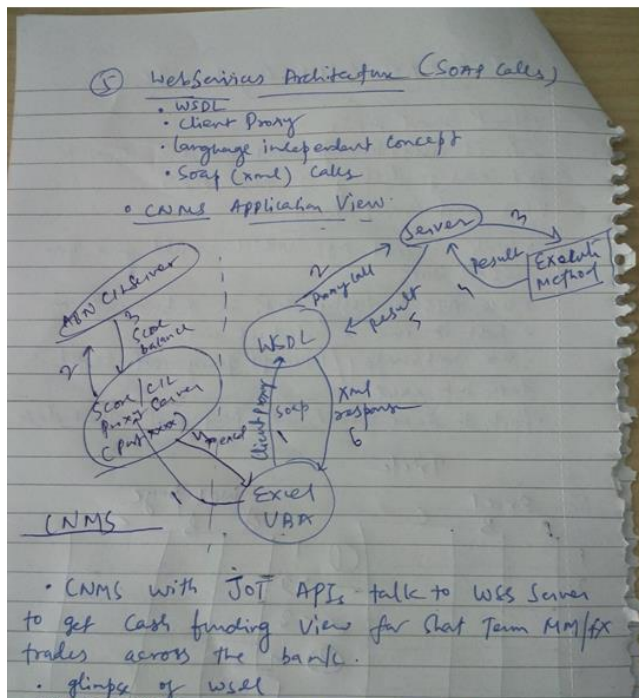 5 WebServices Architecture (SOAP Calls)
• WSDL
• Client Proxy
• Language independent Concept
• Soap (xml) Calls
• CNMS Application View
Server
3
Result
4
Execute
Method
2
Proxy Call
Result
5
ABN CIL Server
3
Score
balance
2
WSDL
Score/CIL
Proxy Server
(Port xxxx)
4
1
Client Proxy
Soap
1
Xml
response
6
Excel
VBA
CNMS
• CNMS with JOT APIs talk to WSS Server
to get Cash funding View for Short Term MM/FX
trades across the bank.
• glimpse of WSDL